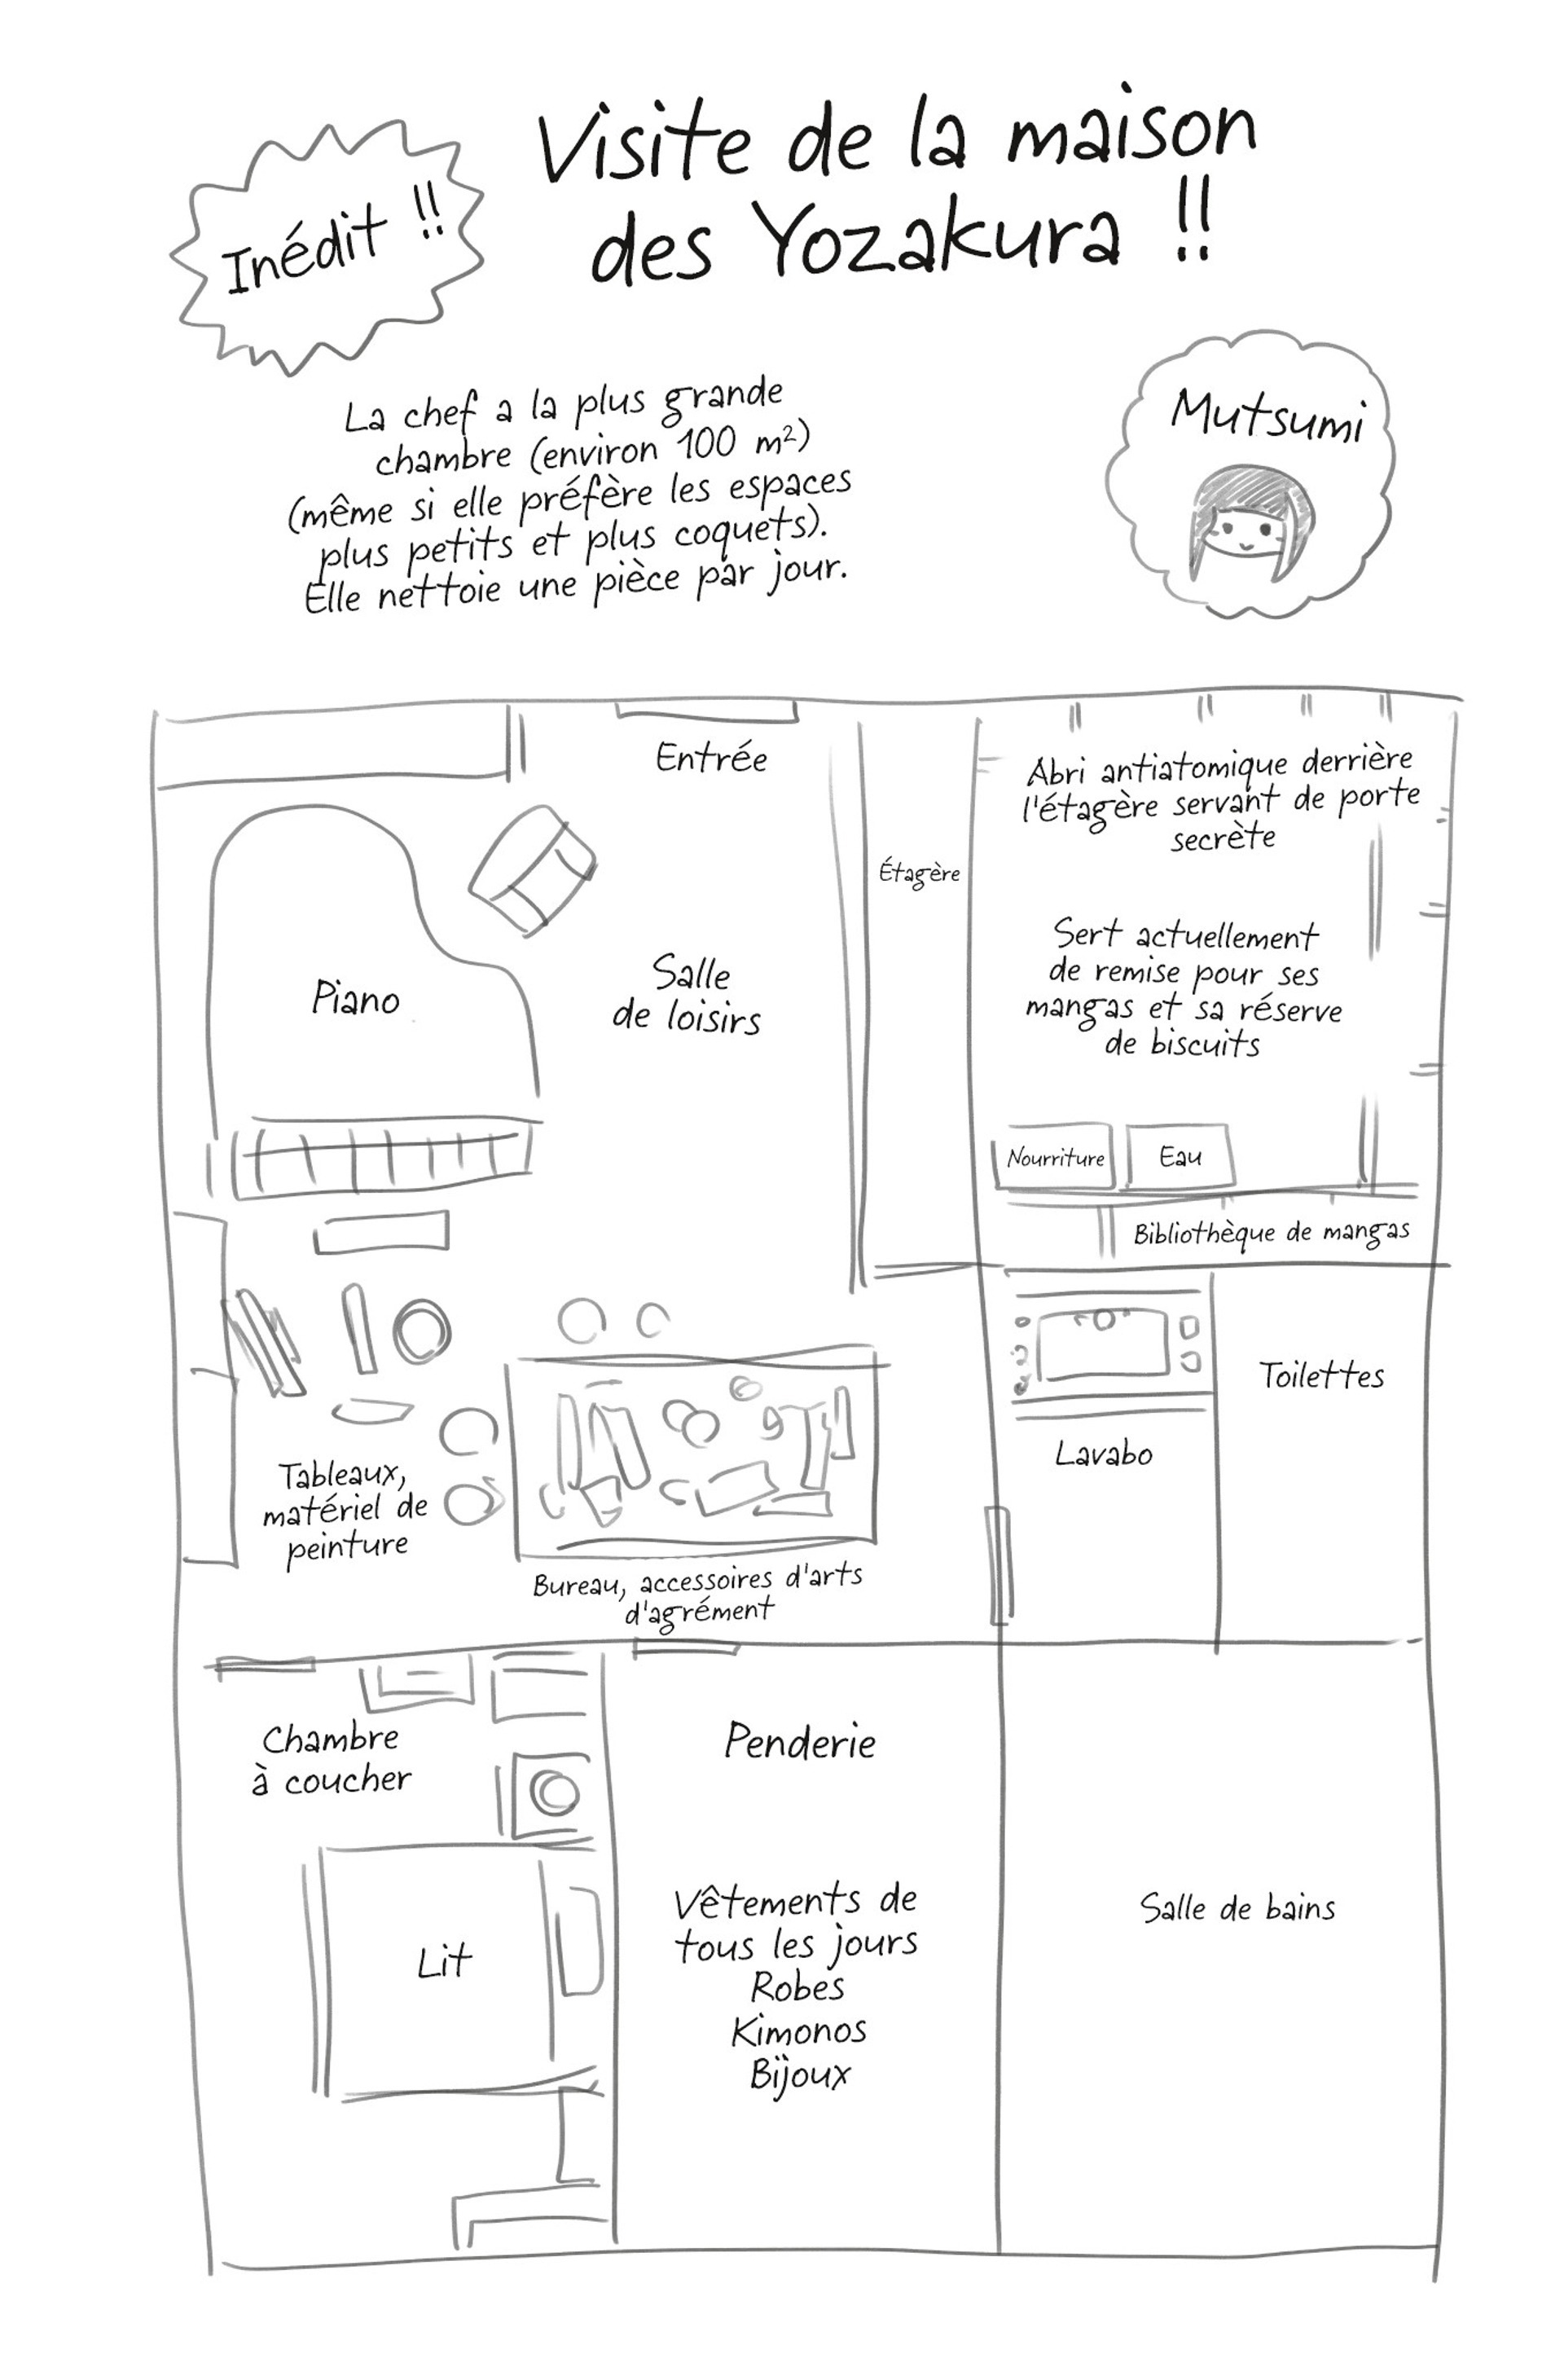 Inédit !!
Visite de la maison
des Yozakura !!
La chef a la plus grande
chambre (environ 100 m²)
(même si elle préfère les espaces
plus petits et plus coquets).
Elle nettoie une pièce par jour.
Mutsumi
Entrée
Étagère
Abri antiatomique derrière
l'étagère servant de porte
secrète
Sert actuellement
de remise pour ses
mangas et sa réserve
de biscuits
Piano
Salle
de loisirs
Nourriture
Eau
Bibliothèque de mangas
Toilettes
Lavabo
Tableaux,
matériel de
peinture
Bureau, accessoires d'arts
d'agrément
Chambre
à coucher
Penderie
Lit
Vêtements de
tous les jours
Robes
Kimonos
Bijoux
Salle de bains